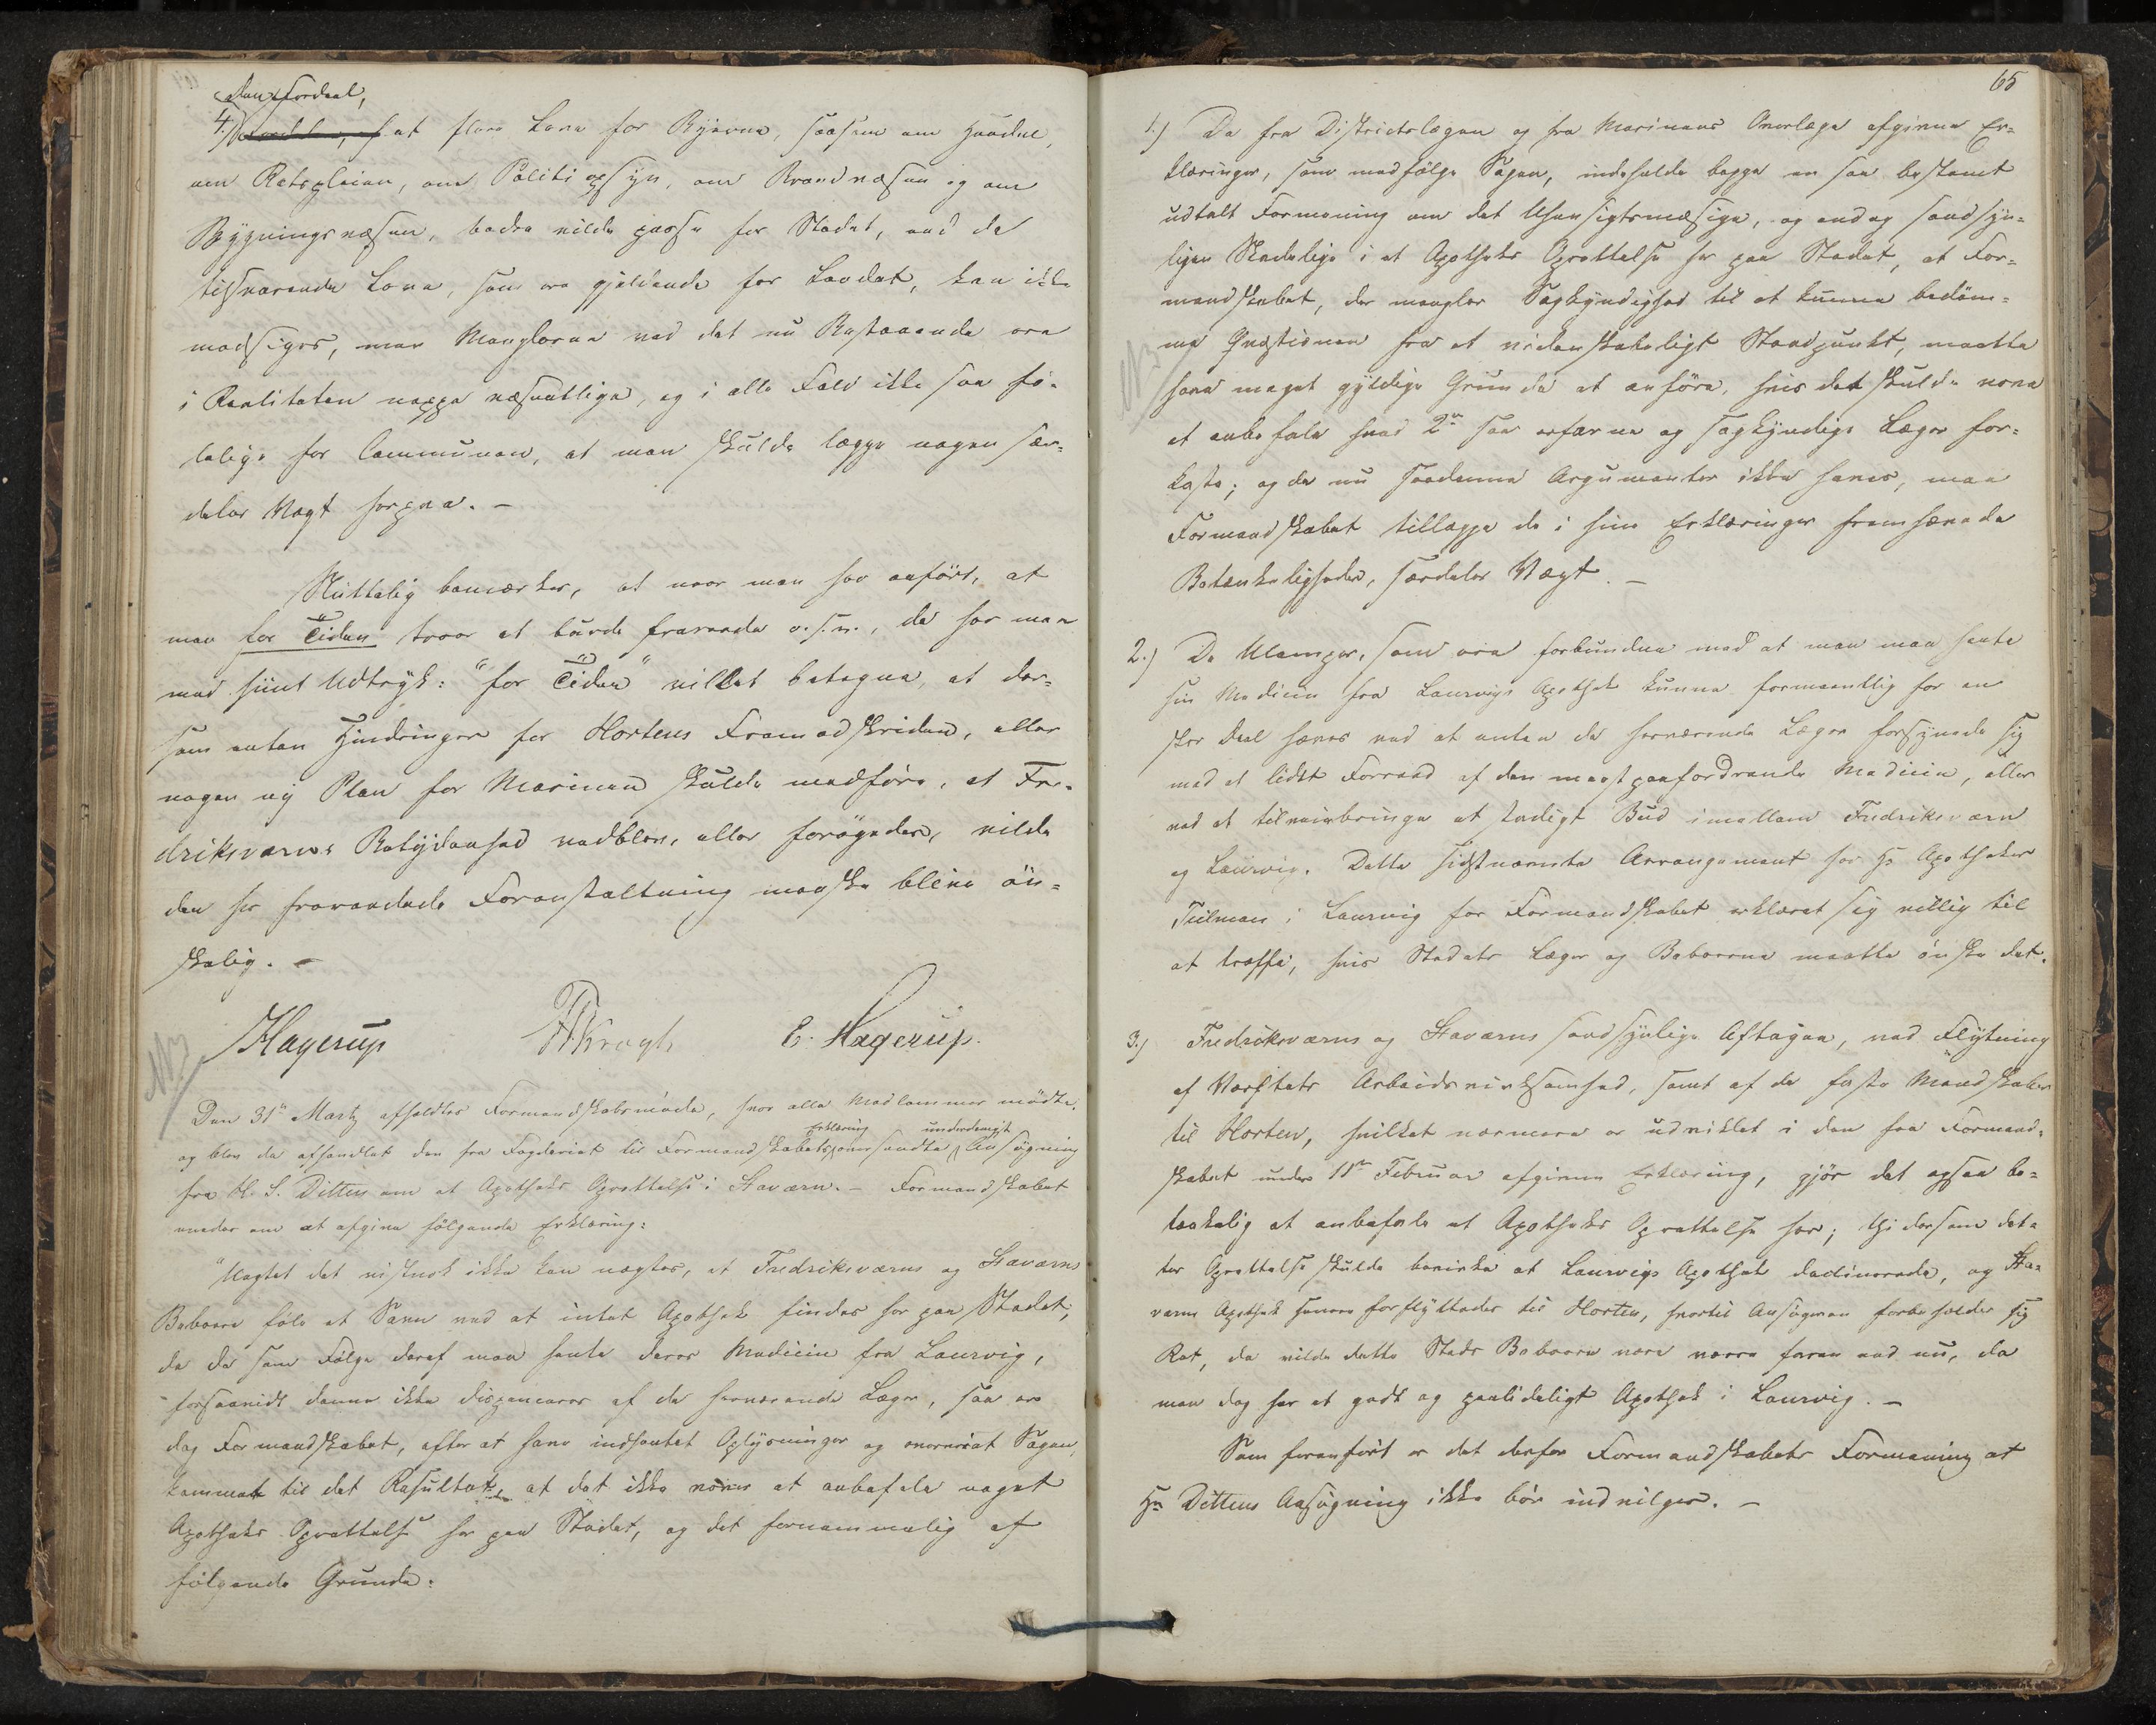 den Fordeel,
4.) at flere Love for Byerne, saasom om Handel,
om Retspleien, om Politiopsyn, om Brandvæsen og om
Bygningsvæsen, bedre vilde passe for Stedet, end de
tilsvarende Love, som ere gjeldende for Landet, kan ikke
modsiges, men Manglerne ved det nu Bestaaende ere
i Realiteten neppe væsentlige, og i alle Fald ikke saa fö-
lelige for Communen, at man skulde lægge nogen sær-
deles Vægt herpaa. –
Sluttelig bemærkes, at naar man har anfört, at
man for Tiden troer at burde fraraade o.s.v., da har man
med hiint Udtryk: "for Tiden" villet betegne, at der-
som enten Hindringer for Hortens Fremadskriden, eller
nogen ny Plan for Marinen skulde medföre, at Fre-
driksværns Betydenhed vedblev, eller forögedes, vilde
den her fraraadede Foranstaltning maaske blive ön-
skelig. –
Hagerup Krogh E. Hagerup.
N 3
Den 31te Marts afholdtes Formandskabsmöde, hvor alle Medlemmer mödte,
Erklæring underdanigst
og blev da afhandlet den fra Fogderiet til Formandskabets oversendte Ansögning
fra H. S. Ditten om et Apotheks Oprettelse i Staværn. – Formandskabet
enedes om at afgive fölgende Erklæring:
"Uagtet det vistnok ikke kan negtes, at Fredriksværns og Staværns
Beboere föle et Savn ved at intet Apothek findes her paa Stedet,
da de som Fölge deraf maa hente deres Medicin fra Laurvig,
forsaavidt denne ikke dispenceres af de herværende Læger, saa er
dog Formandskabet, efter at have indhentet Oplysninger og overveiet Sagen,
kommet til det Resultat, at det ikke vover at anbefale noget
Apotheks Oprettelse her paa Stedet, og det fornemmelig af
fölgende Grunde:
65
1.) De fra Districtslægen og fra Marinens Overlæge afgivne Er-
klæringer, som medfölge Sagen, indeholde begge en saa bestemt
udtalt Formening om det Uhensigtsmæssige, og endog sandsyn-
ligen Skadelige i et Apotheks Oprettelse her paa Stedet, at For-
mandskabet, der mangler Sagkyndighed til at kunne bedöm-
me Qvæstionen fra et videnskabeligt Standpunkt, maatte
N 3
have meget gyldige Grunde at anföre, hvis det skulde vove
at anbefale hvad 2de saa erfarne og sagkyndige Læger for-
kaste; og da nu saadanne Argumenter ikke haves, maa
Formandskabet tillægge de i hine Erklæringer fremhævede
Betænkeligheder, særdeles Vægt. –
2.) De Ulemper, som ere forbundne med at man maa hente
sin Medicin fra Laurvigs Apothek kunne formeentlig for en
stor Deel hæves ved at enten de herværende Læger forsynede sig
med et lidet Forraad af den meest paafordrende Medicin, eller
ved at tilveiebringe et stadigt Bud imellem Fredriksværn
og Laurvig. Dette sidstnævnte Arrangement har Hr Apotheker
Tielman i Laurvig for Formandskabet erklæret sig villig til
at træffe, hvis Stedets Læger og Beboerne maatte önske det.
3.) Fredriksværns og Staværns sandsynlige Aftagen, ved Flytning
af Værftets Arbeidsvirksomhed, samt af de faste Mandskaber
til Horten, hvilket nærmere er udviklet i den fra Formand-
skabet under 11te Februar afgivne Erklæring, gjör det ogsaa be-
tænkelig at anbefale et Apotheks Oprettelse her; thi dersom det-
tes Oprettelse skulde bevirke at Laurvigs Apothek declinerede, og Sta-
værns Apothek senere forflyttedes til Horten, hvortil Ansögeren forbeholder sig
Ret, da vilde dette Steds Beboere være værre faren end nu, da
man dog har et godt og paalideligt Apothek i Laurvig. –
Som foranfört er det derfor Formandskabets Formening at
Hr Dittens Ansögning ikke bör indvilges. –